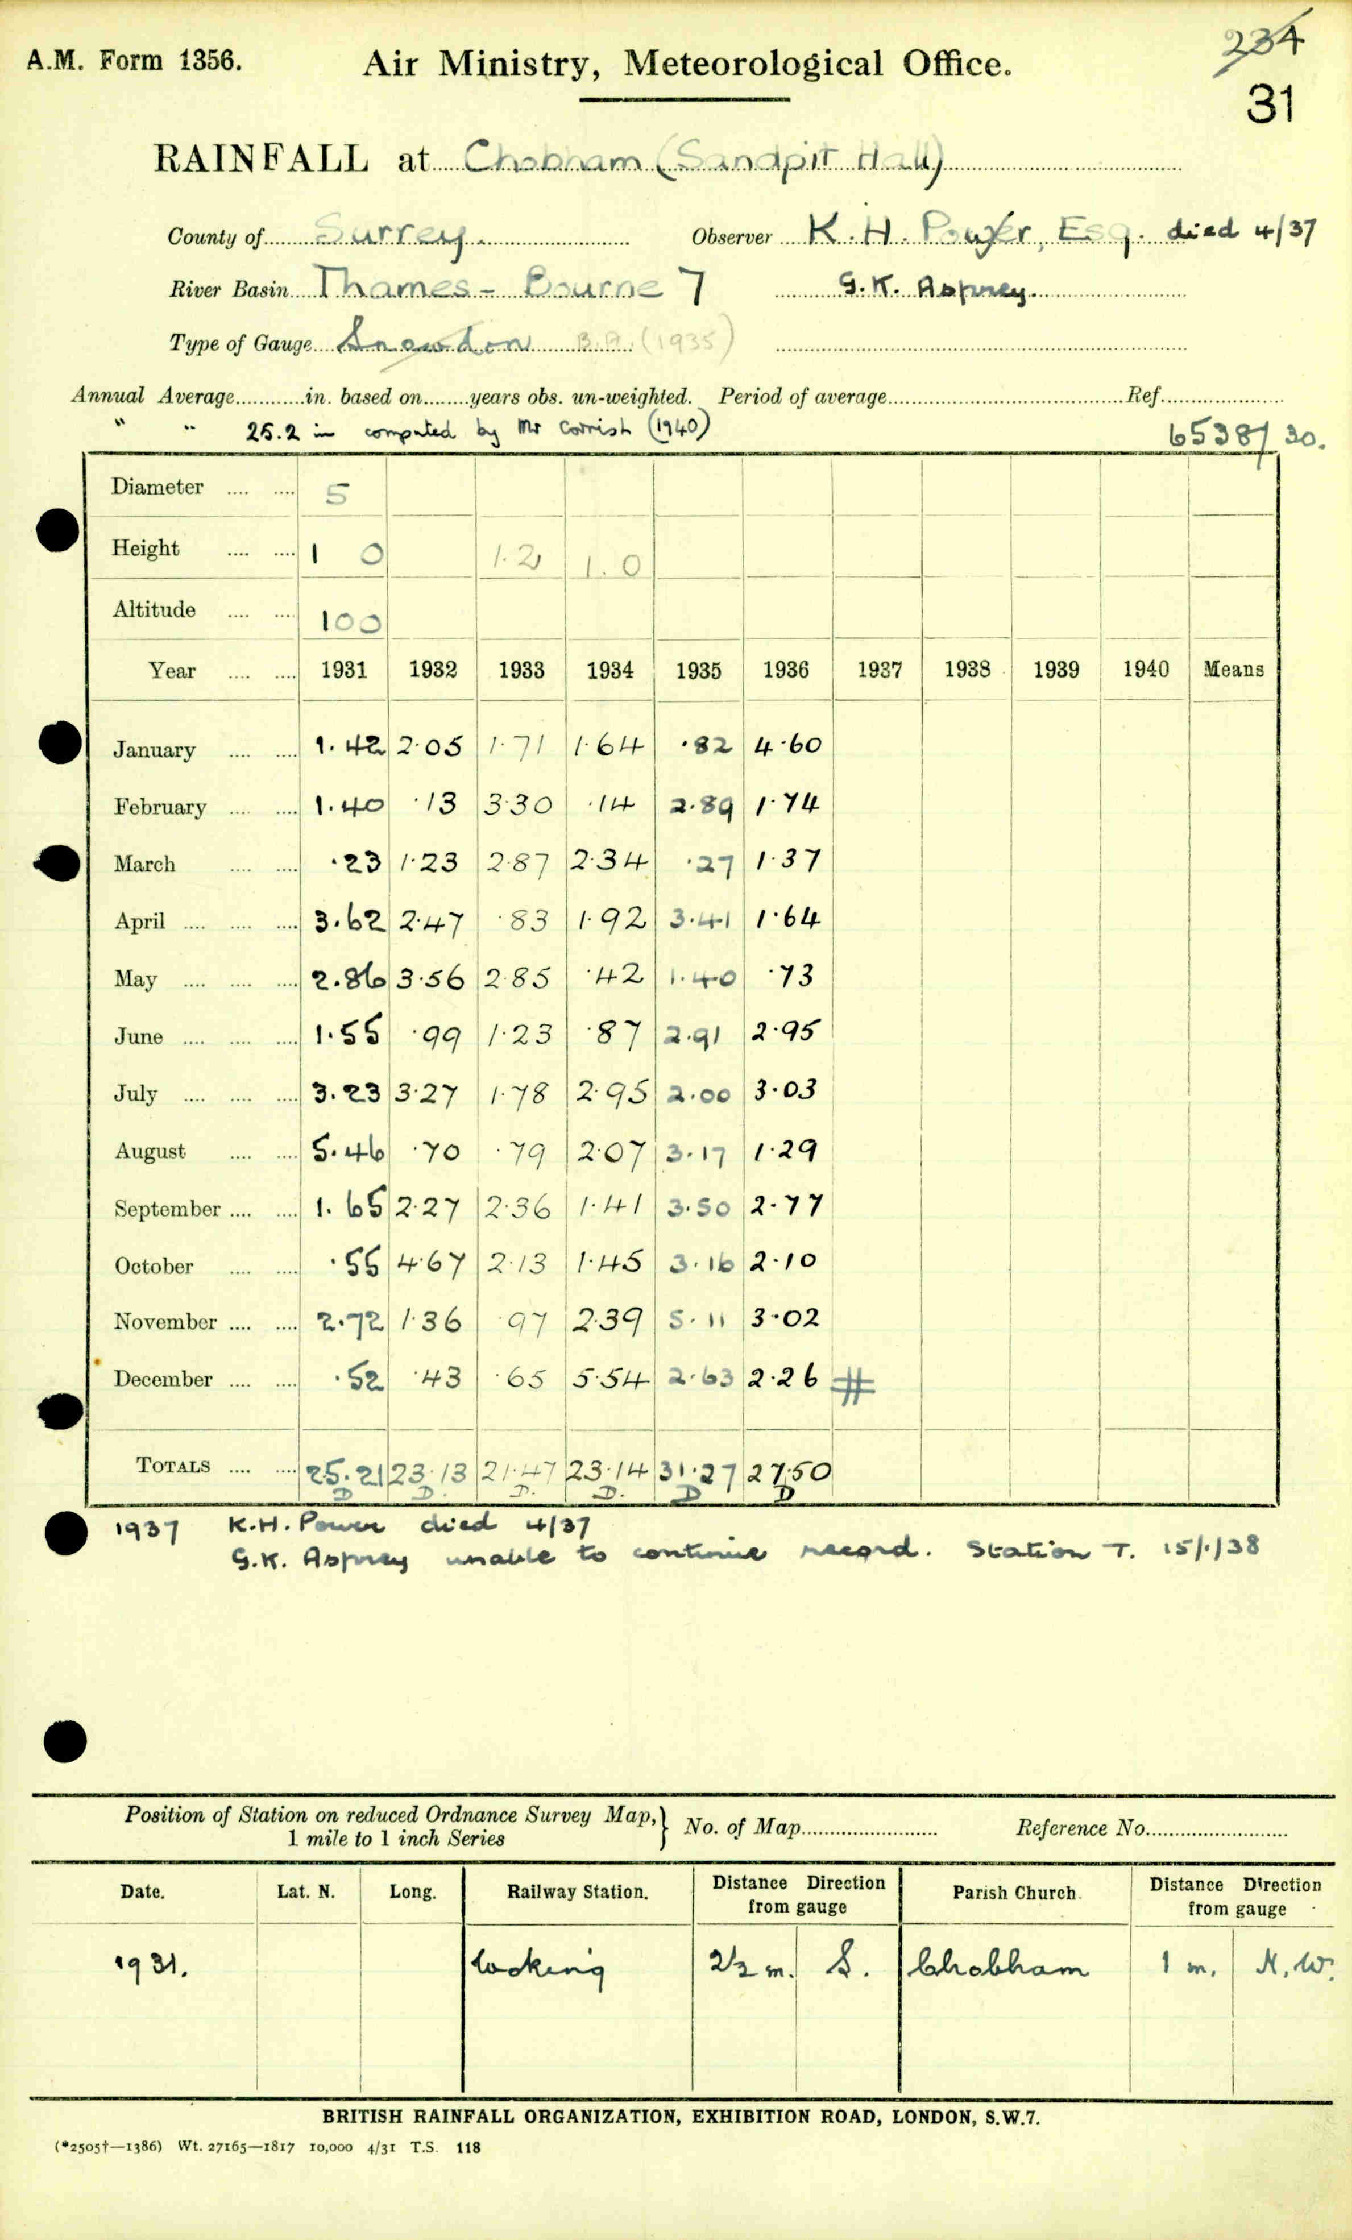 A.M. Form 1356.
Air Ministry, Meteorological Office.
234
31
RAINFALL at Chobham (Sandpit Hall)
County of Surrey. Observer K.H. Power, Esq. died 4/37
River Basin Thames - Bourne 7 G.K. Asprey.
Type of Gauge Snowdon B.A. (1935)
Annual Average in. based on years obs. un-weighted. Period of average Ref.
" " 25.2 in computed by Mr Cornish (1940) 6538/30.
Diameter 5
Height 1 0 1.2 1.0
Altitude 100
Year 1931 1932 1933 1934 1935 1936 1937 1938 1939 1940 Means
January 1.42 2.05 1.71 1.64 .82 4.60
February 1.40 .13 3.30 .14 2.89 1.74
March .23 1.23 2.87 2.34 .27 1.37
April 3.62 2.47 .83 1.92 3.41 1.64
May 2.86 3.56 2.85 .42 1.40 .73
June 1.55 .99 1.23 .87 2.91 2.95
July 3.23 3.27 1.78 2.95 2.00 3.03
August 5.46 .70 .79 2.07 3.17 1.29
September 1.65 2.27 2.36 1.41 3.50 2.77
October .55 4.67 2.13 1.45 3.16 2.10
November 2.72 1.36 .97 2.39 5.11 3.02
December .52 .43 .65 5.54 2.63 2.26 #
TOTALS 25.21 23.13 21.47 23.14 31.27 27.50
D D. D. D. D D
1937 K.H. Power died 4/37
G.K. Asprey unable to continue record. Station T. 15/1/38
Position of Station on reduced Ordnance Survey Map, } No. of Map Reference No.
1 mile to 1 inch Series
Date. Lat. N. Long. Railway Station. Distance Direction from gauge Parish Church. Distance Direction from gauge
1931. Woking 2½ m. S. Chobham 1 m. N.W.
BRITISH RAINFALL ORGANIZATION, EXHIBITION ROAD, LONDON, S.W.7.
(*2505†—1386) Wt. 27165—1817 10,000 4/31 T.S. 118